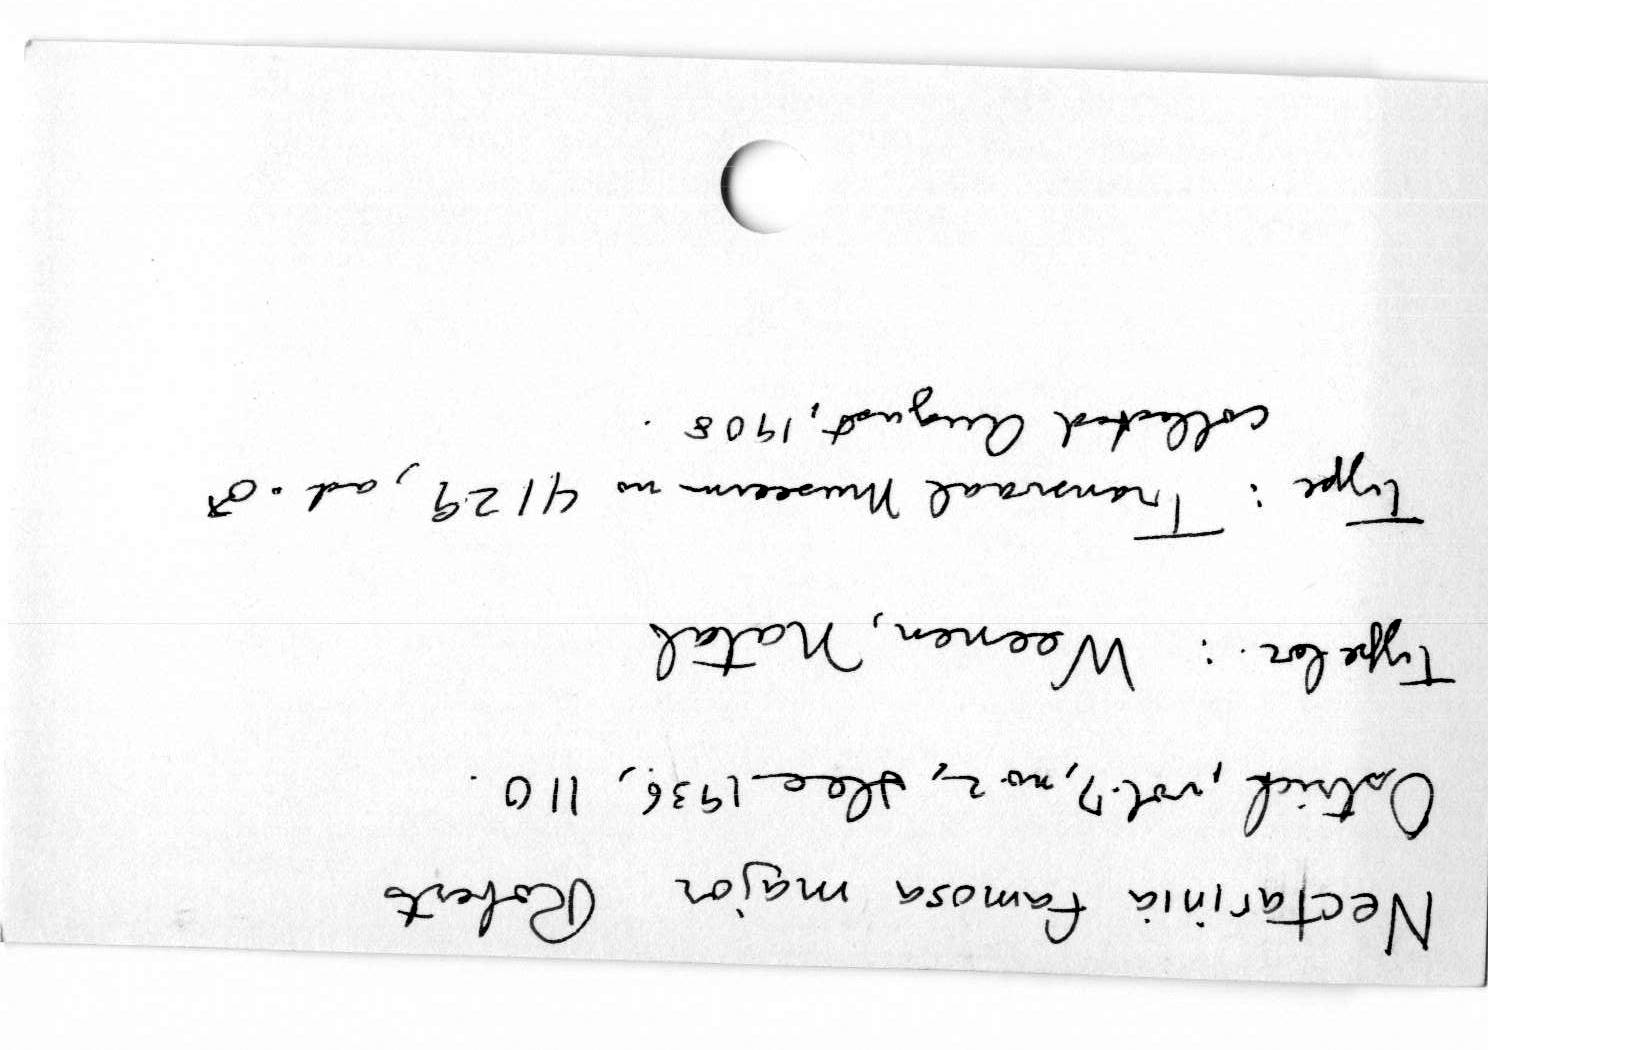 Nectarinia famosa major Robert
Ostrich, vol. 7, no 2, Dec 1936, 110.
Type loc. : Weenen, Natal
Type : Transvaal Museum no 4129, ad. ♂
collected August, 1908.